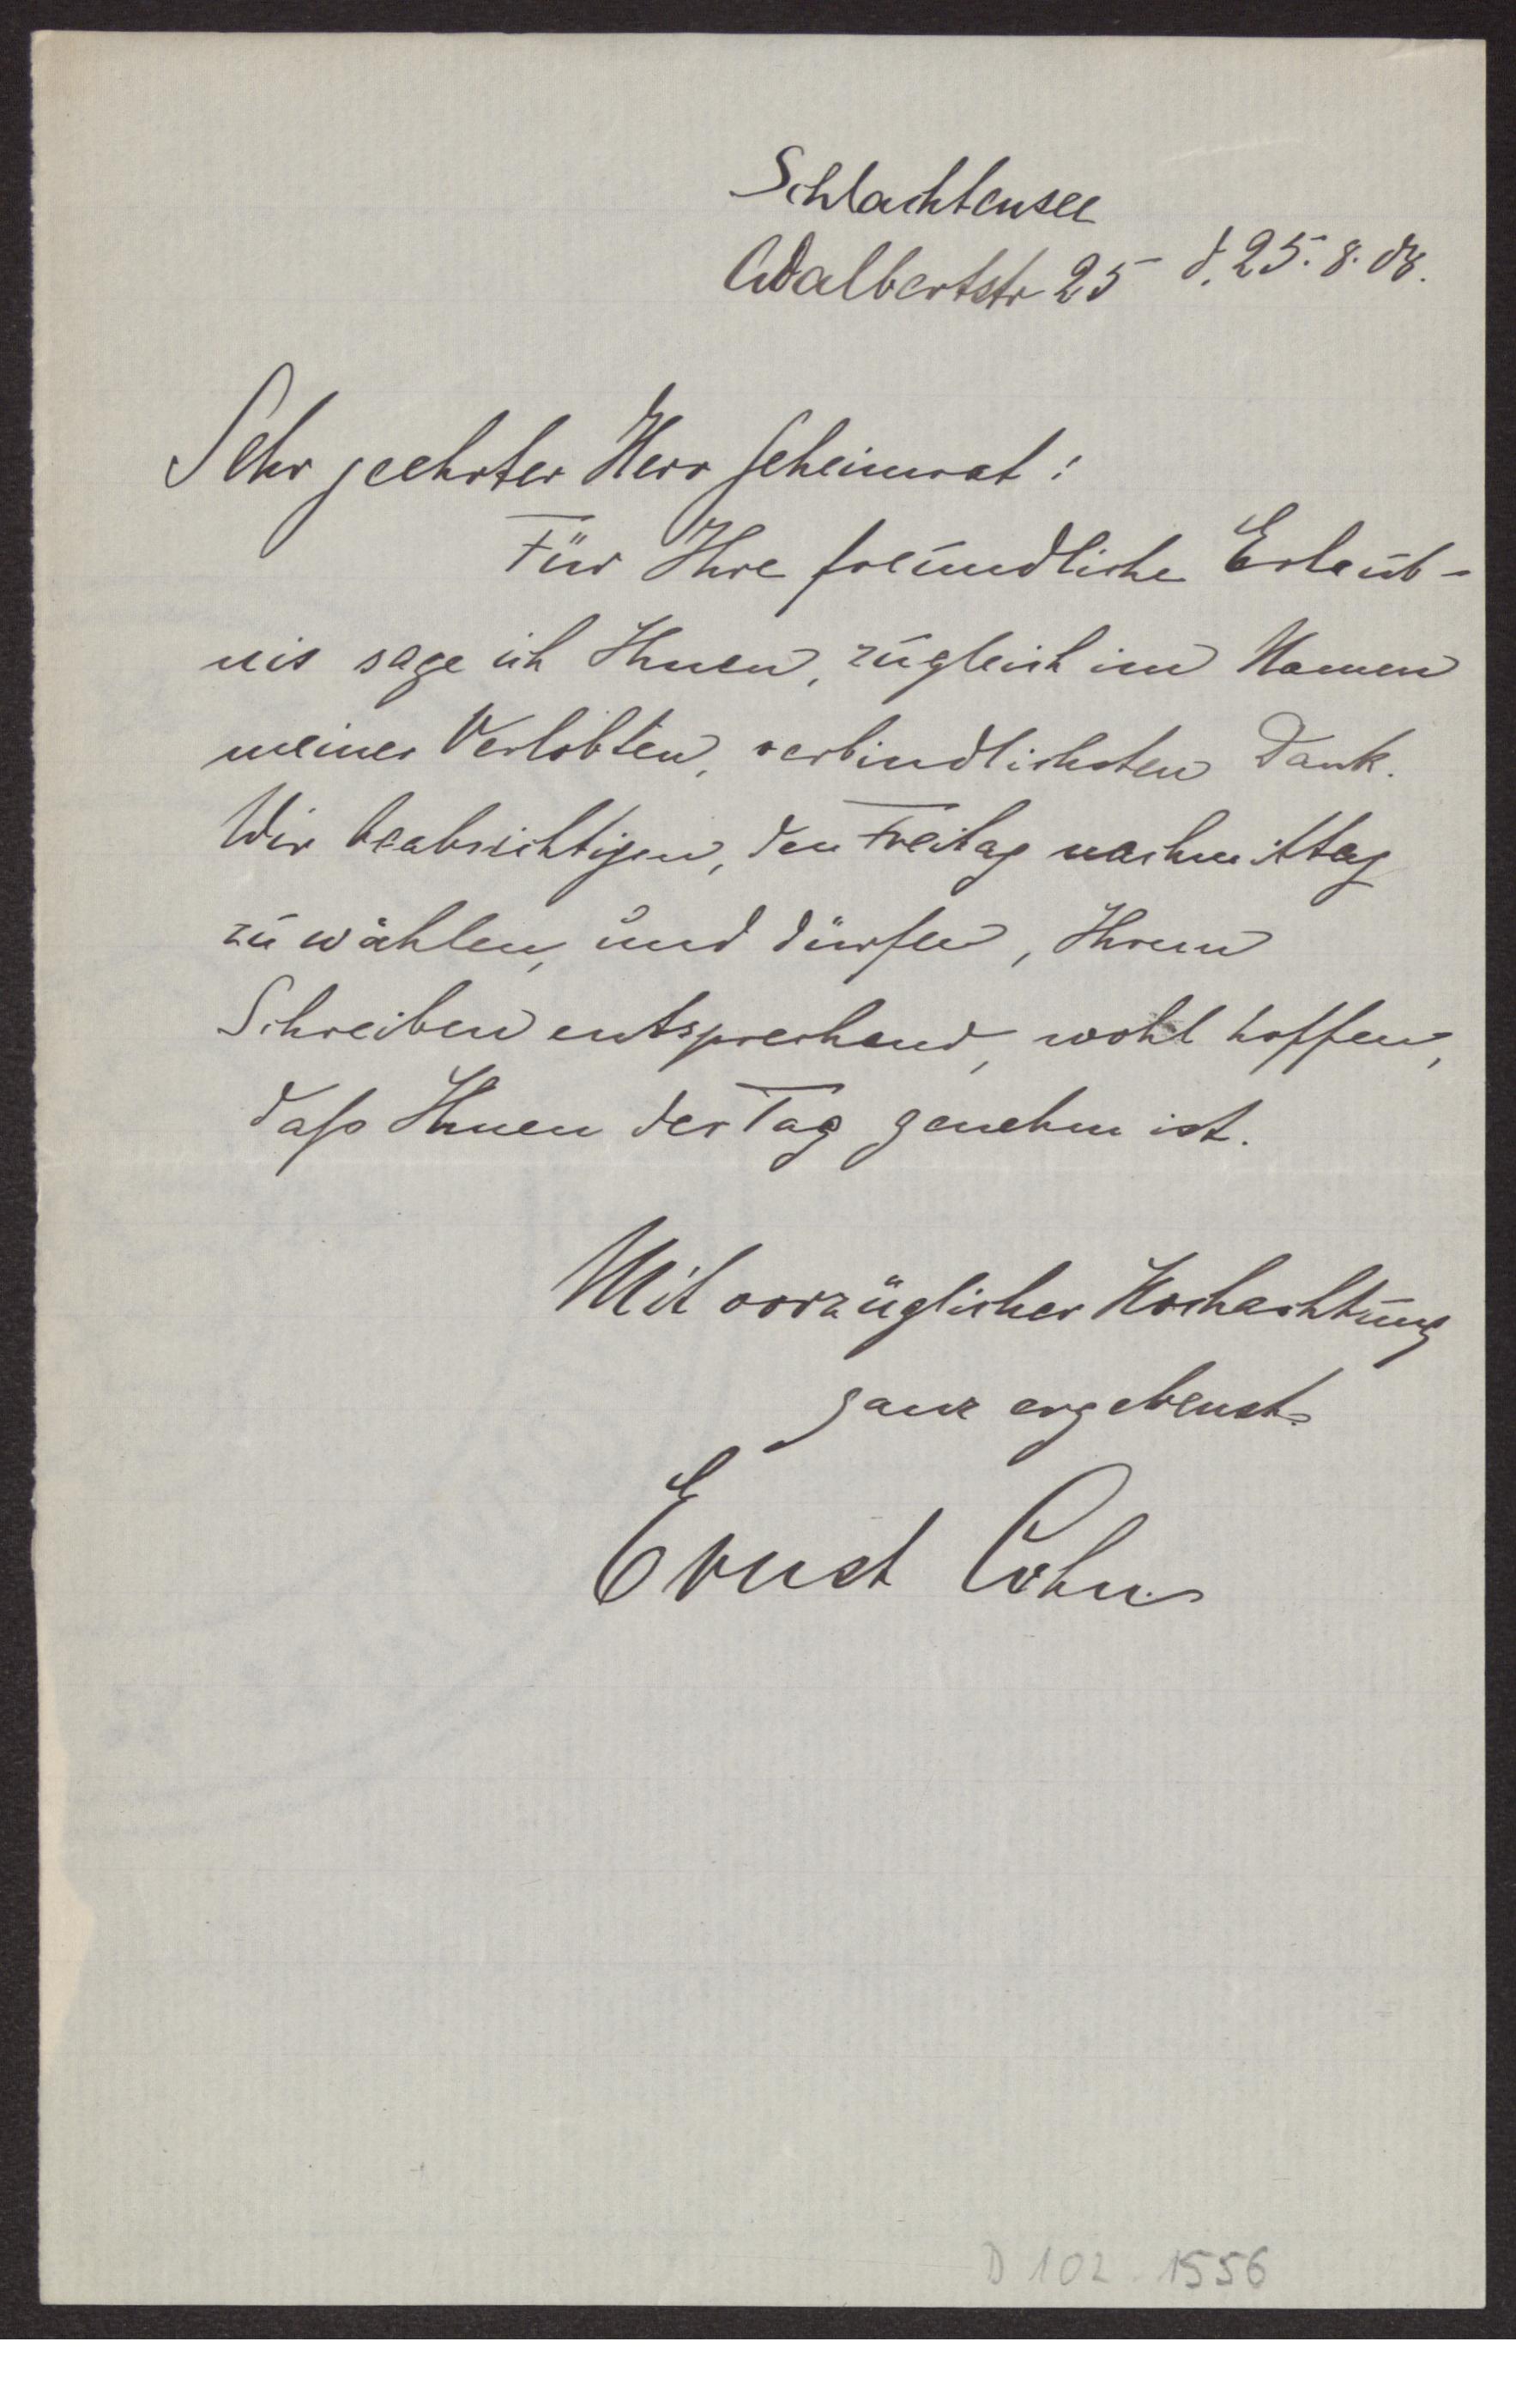 Schlachtensee
Adalbertstr 25 d. 25. 8. 08.
Sehr geehrter Herr Geheimrat!
Für Ihre freundliche Erlaub-
nis sage ich Ihnen, zugleich im Namen
meiner Verlobten, verbindlichsten Dank.
Wir beabsichtigen, den Freitag nachmittag
zu wählen, und dürfen, Ihrem
Schreiben entsprechend, wohl hoffen,
dass Ihnen der Tag genehm ist.
Mit vorzüglicher Hochachtung
ganz ergebenst
Ernst Cohn
D 102 1556